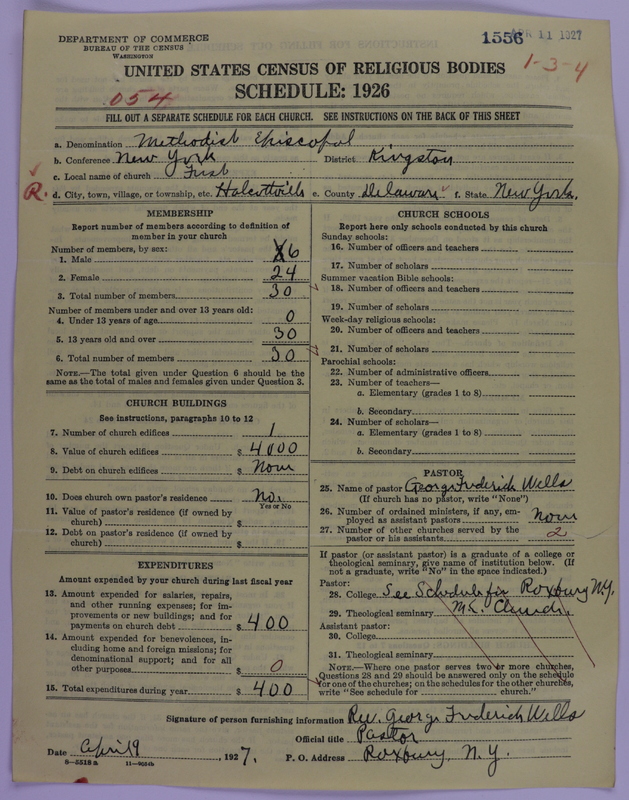 DEPARTMENT OF COMMERCE
BUREAU OF THE CENSUS
WASHINGTON
1556 APR 11 1927
1-3-4
UNITED STATES CENSUS OF RELIGIOUS BODIES
SCHEDULE: 1926
054
FILL OUT A SEPARATE SCHEDULE FOR EACH CHURCH. SEE INSTRUCTIONS ON THE BACK OF THIS SHEET
a. Denomination Methodist Episcopal
b. Conference New York District Kingston
c. Local name of church First
R. d. City, town, village, or township, etc. Halcottville e. County Delaware f. State New York.
MEMBERSHIP
Report number of members according to definition of
member in your church
Number of members, by sex:
1. Male 6
2. Female 24
3. Total number of members 30
Number of members under and over 13 years old:
4. Under 13 years of age 0
5. 13 years old and over 30
6. Total number of members 30
NOTE.—The total given under Question 6 should be the
same as the total of males and females given under Question 3.
CHURCH BUILDINGS
See instructions, paragraphs 10 to 12
7. Number of church edifices 1
8. Value of church edifices $ 4000
9. Debt on church edifices $ None
10. Does church own pastor's residence No.
Yes or No
11. Value of pastor's residence (if owned by
church) $
12. Debt on pastor's residence (if owned by
church) $
EXPENDITURES
Amount expended by your church during last fiscal year
13. Amount expended for salaries, repairs,
and other running expenses; for im-
provements or new buildings; and for
payments on church debt $ 400
14. Amount expended for benevolences, in-
cluding home and foreign missions; for
denominational support; and for all
other purposes $ 0
15. Total expenditures during year $ 400
CHURCH SCHOOLS
Report here only schools conducted by this church
Sunday schools:
16. Number of officers and teachers
17. Number of scholars
Summer vacation Bible schools:
18. Number of officers and teachers
19. Number of scholars
Week-day religious schools:
20. Number of officers and teachers
21. Number of scholars
Parochial schools:
22. Number of administrative officers
23. Number of teachers—
a. Elementary (grades 1 to 8)
b. Secondary
24. Number of scholars—
a. Elementary (grades 1 to 8)
b. Secondary
PASTOR
25. Name of pastor George Frederick Wells
(If church has no pastor, write "None")
26. Number of ordained ministers, if any, em-
ployed as assistant pastors None
27. Number of other churches served by the
pastor or his assistants 2
If pastor (or assistant pastor) is a graduate of a college or
theological seminary, give name of institution below. (If
not a graduate, write "No" in the space indicated.)
Pastor:
28. College See Schedule for Roxbury N.Y.
29. Theological seminary M.E. Church.
Assistant pastor:
30. College
31. Theological seminary
NOTE.—Where one pastor serves two or more churches,
Questions 28 and 29 should be answered only on the schedule
for one of the churches; on the schedules for the other churches,
write "See schedule for church."
Signature of person furnishing information Rev. George Frederick Wells
Official title Pastor
Date April 9, 1927. P. O. Address Roxbury, N.Y.
8-5518a